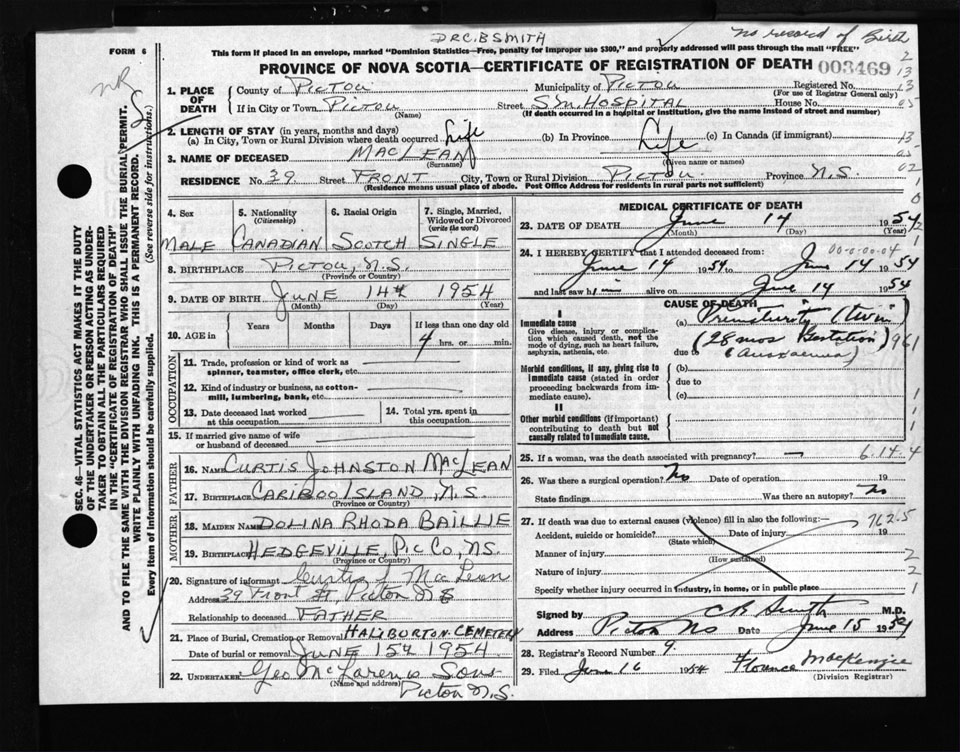 DR C.B SMITH
no record of Birth
FORM 6
This form if placed in an envelope, marked "Dominion Statistics—Free, penalty for improper use $300," and properly addressed will pass through the mail "FREE"
PROVINCE OF NOVA SCOTIA—CERTIFICATE OF REGISTRATION OF DEATH 003469
NR
SEC. 46—VITAL STATISTICS ACT MAKES IT THE DUTY
OF THE UNDERTAKER OR PERSON ACTING AS UNDER-
TAKER TO OBTAIN ALL THE PARTICULARS REQUIRED
IN THE "CERTIFICATE OF REGISTRATION OF DEATH"
AND TO FILE THE SAME WITH THE DIVISION REGISTRAR WHO SHALL ISSUE THE BURIAL PERMIT.
WRITE PLAINLY WITH UNFADING INK. THIS IS A PERMANENT RECORD.
Every item of Information should be carefully supplied. (See reverse side for instructions.)
1. PLACE OF DEATH
County of PICTOU Municipality of PICTOU Registered No. 13
(For use of Registrar General only)
If in City or Town PICTOU Street S.M. HOSPITAL House No. 05
(Name) (If death occurred in a hospital or institution, give the name instead of street and number)
2. LENGTH OF STAY (in years, months and days)
(a) In City, Town or Rural Division where death occurred Life (b) In Province Life (c) In Canada (if immigrant)
3. NAME OF DECEASED MACLEAN
(Surname) (Given name or names)
RESIDENCE No. 39 Street FRONT City, Town or Rural Division PICTOU Province N.S.
(Residence means usual place of abode. Post Office Address for residents in rural parts not sufficient)
4. Sex MALE
5. Nationality (Citizenship) CANADIAN
6. Racial Origin SCOTCH
7. Single, Married, Widowed or Divorced (write the word) SINGLE
8. BIRTHPLACE PICTOU, N.S.
(Province or Country)
9. DATE OF BIRTH JUNE 14th 1954
(Month) (Day) (Year)
10. AGE in Years Months Days If less than one day old
4 hrs. or min.
OCCUPATION
11. Trade, profession or kind of work as spinner, teamster, office clerk, etc.
12. Kind of industry or business, as cotton-mill, lumbering, bank, etc.
13. Date deceased last worked at this occupation
14. Total yrs. spent in this occupation
15. If married give name of wife or husband of deceased
FATHER
16. NAME CURTIS JOHNSTON MACLEAN
17. BIRTHPLACE CARIBOO ISLAND, N.S.
(Province or Country)
MOTHER
18. MAIDEN NAME DOLINA RHODA BAILLIE
19. BIRTHPLACE HEDGEVILLE, PIC CO, N.S.
(Province or Country)
20. Signature of informant Curtis J MacLean
Address 39 Front St, Pictou N S
Relationship to deceased FATHER
21. Place of Burial, Cremation or Removal HALIBURTON CEMETERY
Date of burial or removal JUNE 15th 1954
22. UNDERTAKER Geo McLaren & Sons
(Name and address)
Pictou N.S.
MEDICAL CERTIFICATE OF DEATH
23. DATE OF DEATH June 14 1954
(Month) (Day) (Year)
00-0-00-04
24. I HEREBY CERTIFY that I attended deceased from:
June 14 1954 to June 14 1954
and last saw him alive on June 14 1954
CAUSE OF DEATH
I
Immediate cause
Give disease, injury or complication which caused death, not the mode of dying, such as heart failure, asphyxia, asthenia, etc.
(a) Prematurity (twin)
(28 mos Gestation) 961
due to
Morbid conditions, if any, giving rise to immediate cause (stated in order proceeding backwards from immediate cause).
(b)
due to
(c)
II
Other morbid conditions (if important) contributing to death but not causally related to immediate cause.
25. If a woman, was the death associated with pregnancy? — 6.14.4
26. Was there a surgical operation? No Date of operation 19
State findings Was there an autopsy? No
27. If death was due to external causes (violence) fill in also the following:— 762.5
Accident, suicide or homicide? Date of injury 19
(State which)
Manner of injury
(How sustained)
Nature of injury
Specify whether injury occurred in industry, in home, or in public place
Signed by C B Smith M.D.
Address Pictou NS Date June 15 1954
28. Registrar's Record Number 9.
29. Filed June 16 1954 Florence MacKenzie
(Division Registrar)